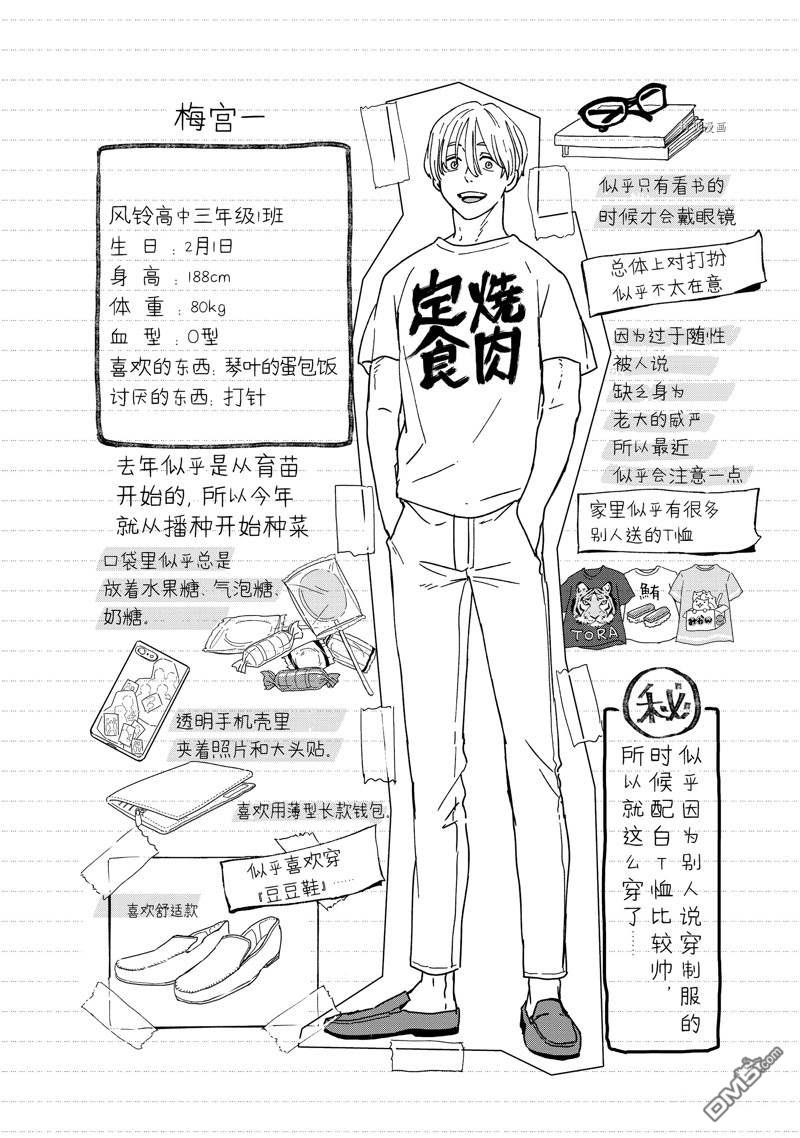 梅宫一
风铃高中三年级1班
生 日 : 2月1日
身 高 : 188cm
体 重 : 80kg
血 型 : O型
喜欢的东西: 琴叶的蛋包饭
讨厌的东西: 打针
去年似乎是从育苗
开始的, 所以今年
就从播种开始种菜
口袋里似乎总是
放着水果糖、气泡糖、
奶糖。
透明手机壳里
夹着照片和大头贴。
喜欢用薄型长款钱包。
似乎喜欢穿
『豆豆鞋』……
喜欢舒适款
焼肉
定食
似乎只有看书的
时候才会戴眼镜
总体上对打扮
似乎不太在意
因为过于随性
被人说
缺乏身为
老大的威严
所以最近
似乎会注意一点
家里似乎有很多
别人送的T恤
TORA
鮪
秘
似乎因为别人说穿制服的
时候配白T恤比较帅,
所以就这么穿了……
DM5.com